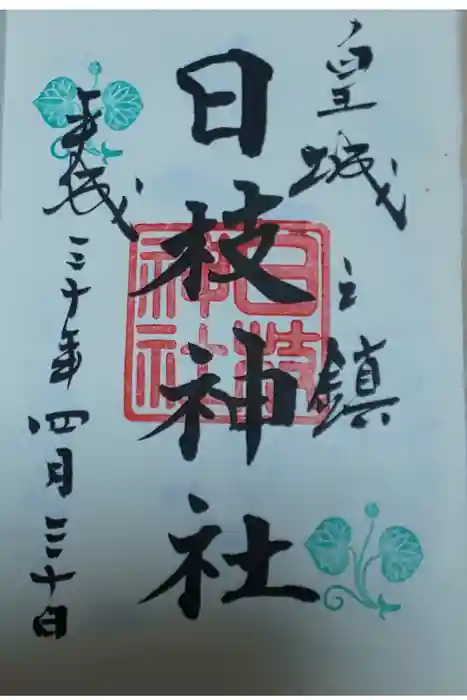 皇城之鎮
日枝神社
日枝神社
平成三十年四月三十日